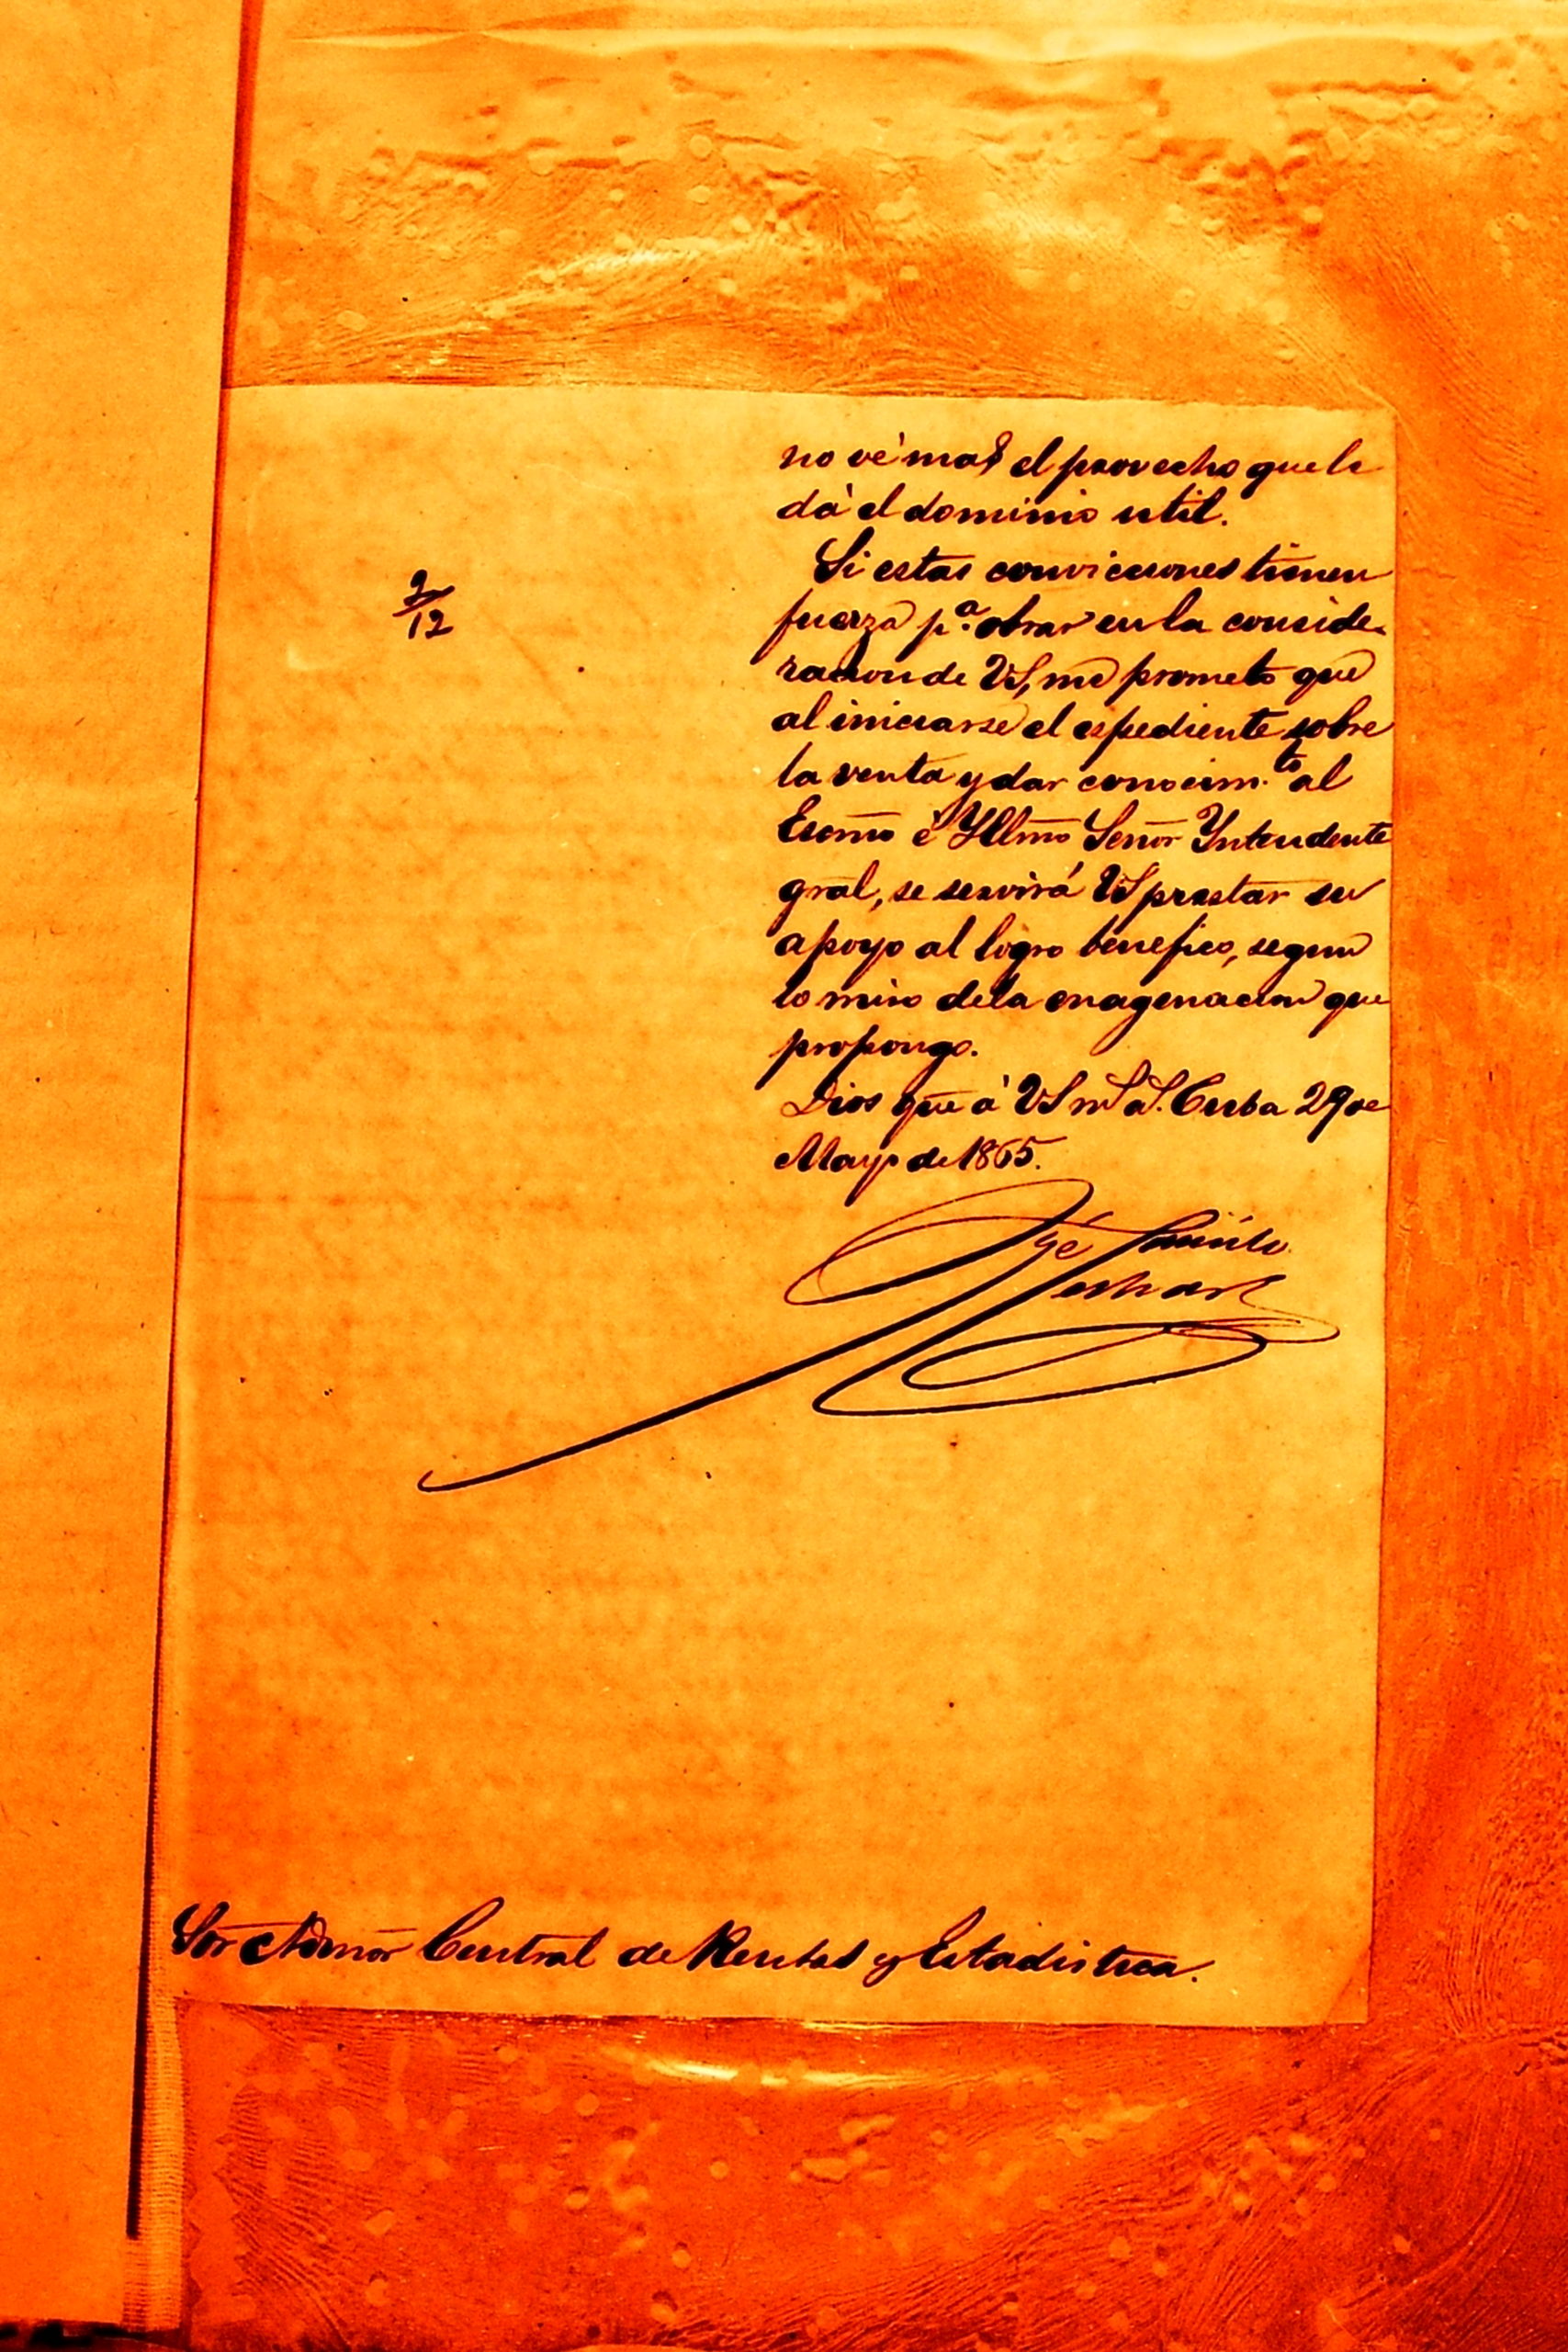 no vé mas el provecho que le
dá el dominio util.
Si estas convicciones tienen
fuerza p.ª obrar en la conside-
racion de VS, me prometo que
al iniciarse el espediente sobre
la venta y dar conocim.to al
Escmo é Yllmo Señor Yntendente
gral, se servirá VS prestar su
apoyo al logro benefico, segun
lo miro de la enagenacion que
propongo.
Dios gue á VS m.s a.s Cuba 29 de
Mayo de 1865.
José
2/12
Sor Admor Central de Rentas y Estadistica.